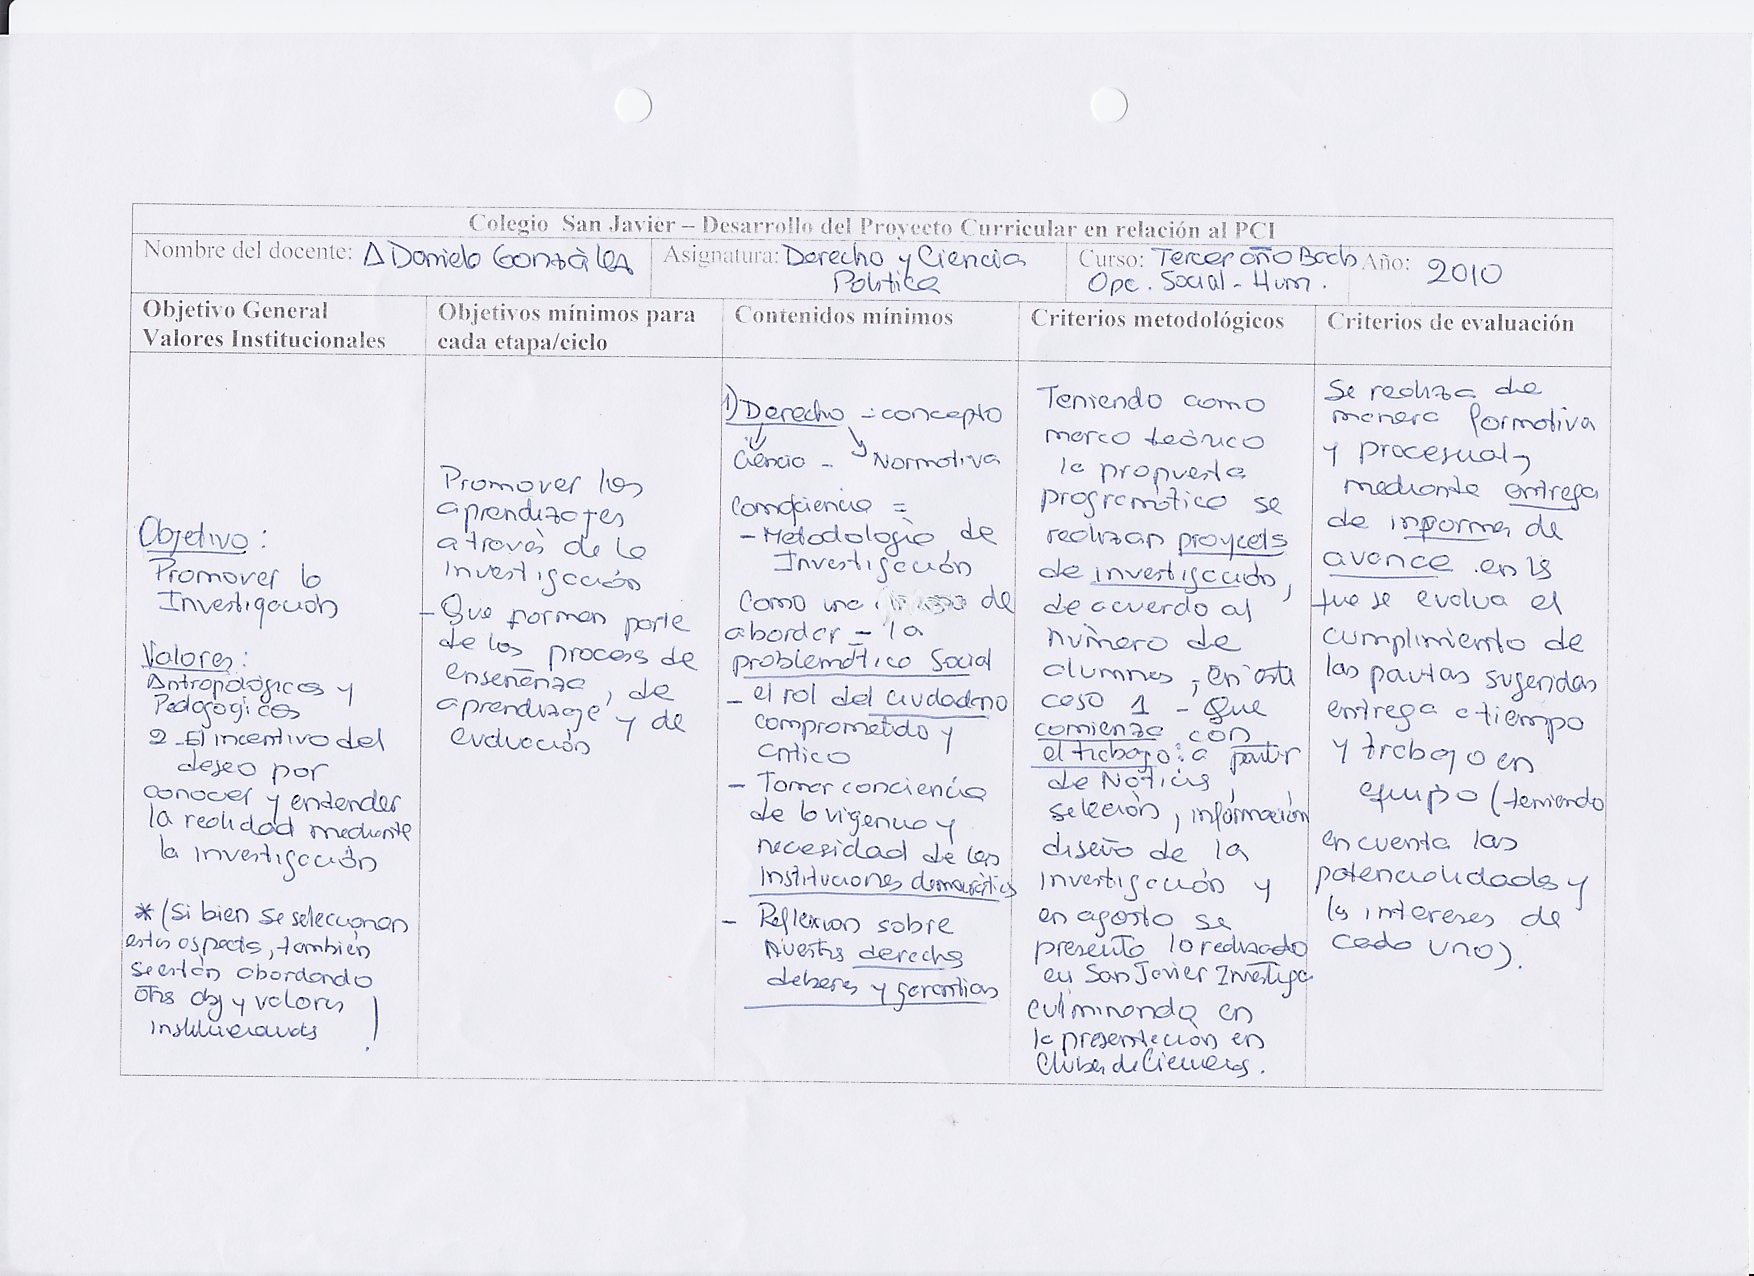 Colegio San Javier – Desarrollo del Proyecto Curricular en relación al PCI
Nombre del docente: A Daniela González
Asignatura: Derecho y Ciencia
Política
Curso: Tercer año Bach
Opc. Social - Hum.
Año: 2010
Objetivo General
Valores Institucionales
Objetivos mínimos para
cada etapa/ciclo
Contenidos mínimos
Criterios metodológicos
Criterios de evaluación
Objetivo:
Promover la
Investigación
Valores:
Antropológicos y
Pedagógicos
2 - El incentivo del
deseo por
conocer y entender
la realidad mediante
la investigación
* (Si bien se seleccionan
estos aspectos, también
se están abordando
otros obj y valores
institucionales !
Promover los
aprendizajes
a través de la
investigación
- Que formen parte
de los procesos de
enseñanza, de
aprendizaje y de
evaluación
1) Derecho - concepto
Ciencia - Normativa
Como ciencia =
- Metodología de
Investigación
Como una de
abordar - la
problemática Social
- el rol del ciudadano
comprometido y
crítico
- Tomar conciencia
de la vigencia y
necesidad de las
instituciones democráticas
- Reflexion sobre
nuestros derechos
deberes y garantias
Teniendo como
marco teórico
la propuesta
programática se
realizan proyectos
de investigación,
de acuerdo al
número de
alumnos, en este
caso 1 - Que
comienza con
el trabajo: a partir
de Noticias,
selección, información,
diseño de la
investigación y
en agosto se
presenta lo realizado
en San Javier Investiga
culminando en
la presentación en
Clubes de Ciencias.
Se realiza de
manera formativa
y procesual,
mediante entrega
de informes de
avance en los
que se evalua el
cumplimiento de
las pautas sugeridas
entrega a tiempo
y trabajo en
equipo (teniendo
en cuenta las
potencialidades y
los intereses de
cada uno).